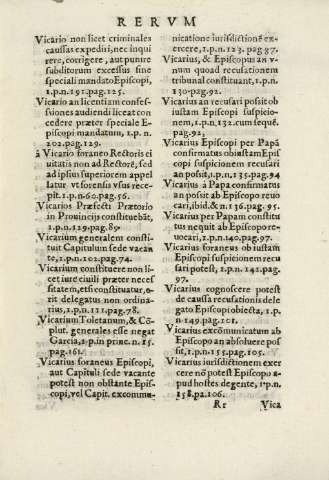 RERVM
Vicario non licet criminales
caussas expediri, nec inqui
rere, corrigere, aut punire
subditorum excessus sine
speciali mandato Episcopi,
1.p.n.191.pag.125.
Vicario an licentiam confes-
siones audiendi liceat con
cedere præter speciale E-
piscopi mandatum, 1.p.n.
102.pag.129.
à Vicario foraneo Rectoris ci
uitatis non ad Rectorē, sed
ad ipsius superiorem appel
latur vt forensis vsus rece-
pit. 1.p.n.60.pag.56.
Vicarios Præfecti Prætorio
in Prouincijs constituebāt,
1.p.n.129.pag.89.
Vicarium generalem consti-
tuit Capitulum sede vacan
te, 1.n.102.pag.74.
Vicarium constituere non li-
cet iure ciuili præter neces-
sitatem, etsi constituatur, e-
rit delegatus non ordina-
rius, 1.p.n.111.pag.78.
Vicarium Toletanum, & Cō-
plut. generales esse negat
Garcia, 1.p.in princ. n.15.
pag.161.
Vicarius foraneus Episcopi,
aut Capituli sede vacante
potest non obstante Epis-
copi, vel Capit. excommu-
nicatione iurisdictionē ex-
ercere, 1.p.n.123. pag 87.
Vicarius, & Episcopus an v-
num quoad recusationem
tribunal constituant, 1.p.n.
130.pag.92.
Vicarius an recusari possit ob
iustam Episcopi suspicio-
nem, 1.p.n.132.cum sequē.
pag.92.
Vicarius Episcopi per Papā
confirmatus ob iustam Epis
copi suspicionem recusari
an possit, 1.p.n.135.pag 94
Vicarius à Papa confirmatus
an possit ab Episcopo reuo
cari, ibid. & n.136.pag.95.
Vicarius per Papam constitu
tus nequit ab Episcopo re-
uocari, 1.p.n.140.pag.97.
Vicarius foraneus ob iustam
Episcopi suspicionem recu
sari potest, 1.p.n. 141.pag.
97.
Vicarius cognoscere potest
de causa recusationis dele
gato Episcopi obiecta, 1.p.
n.149.pag.101.
Vicarius excōmunicatum ab
Episcopo an absoluere pos-
sit, 1.p.n.155.pag.105.
Vicarius iurisdictionem exer
cere nō potest Episcopo a-
pud hostes degente, 1.p.n.
158.pa.106.
Rr Vica